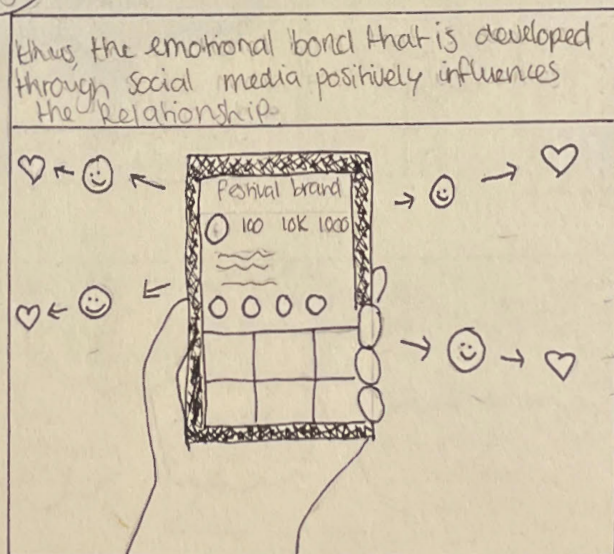 thus, the emotional bond that is developed
through social media positively influences
the Relationship.
Festival brand
100 10K 1000